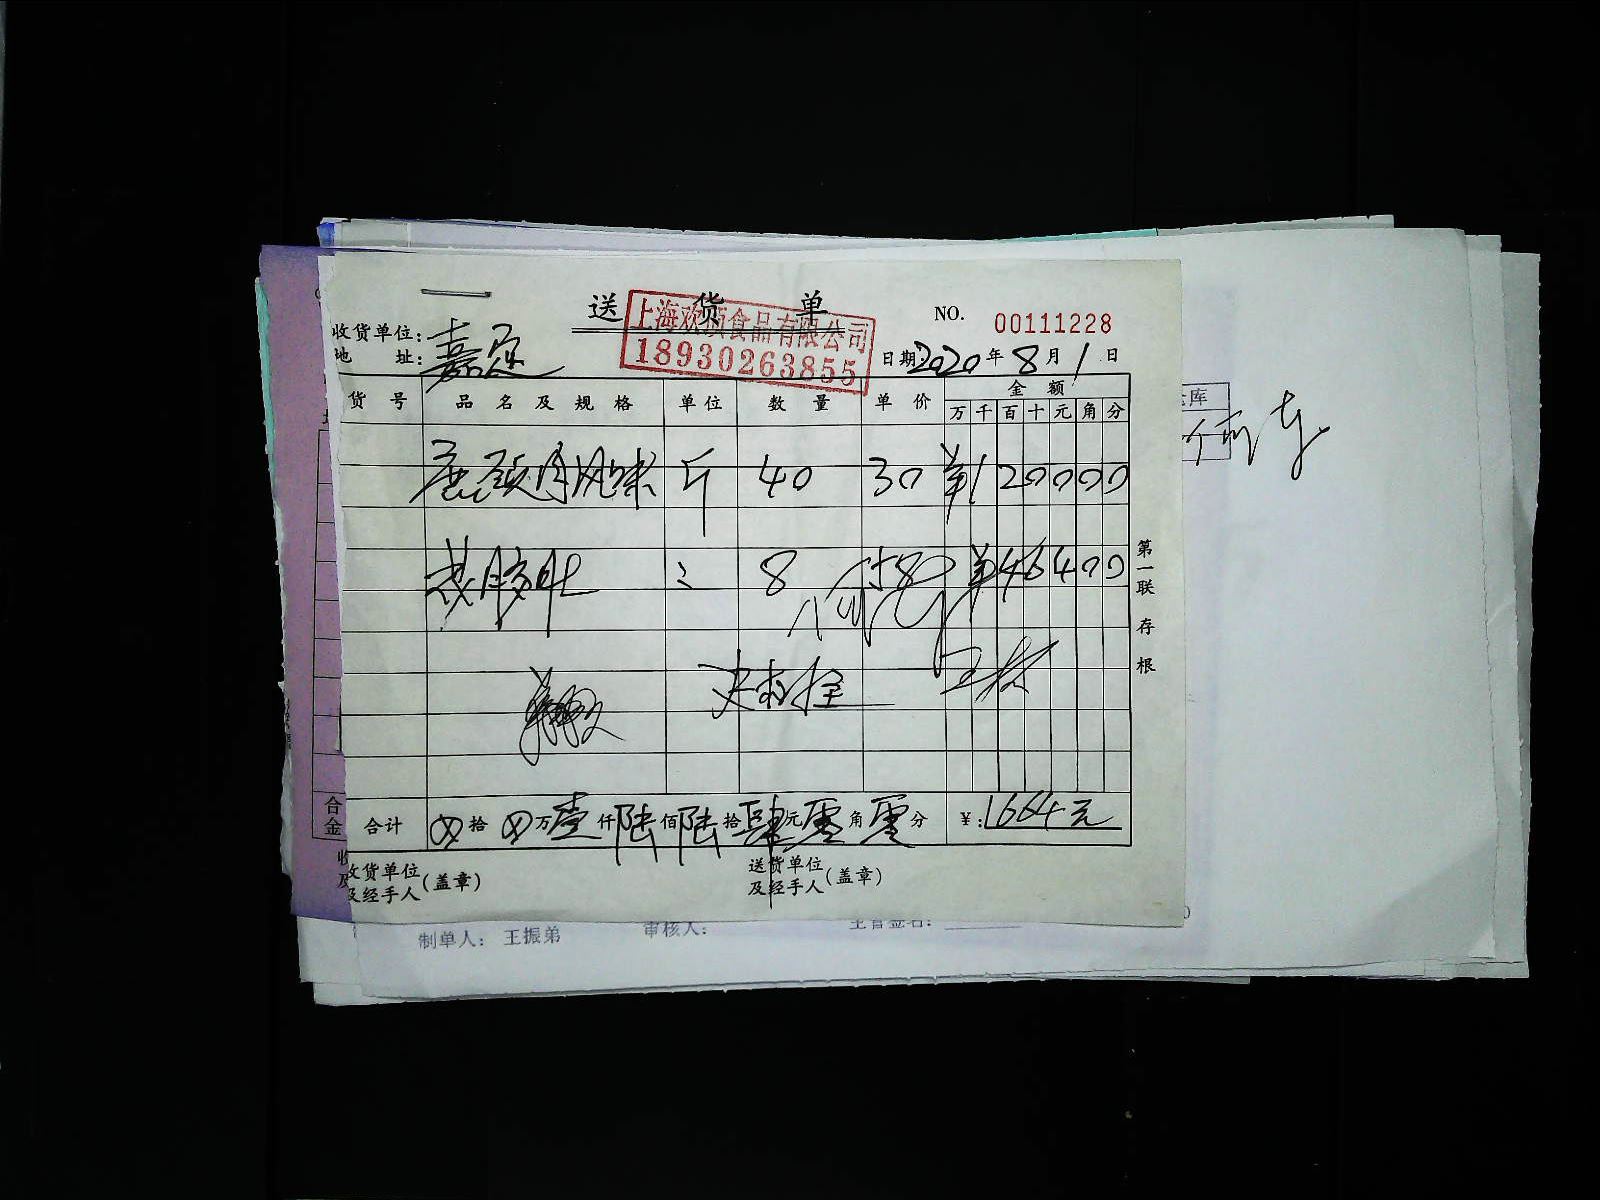 送 货 单
上海欢颂食品有限公司
18930263855
NO. 00111228
收货单位:
嘉定
地 址:
日期 2020 年 8 月 1 日
货 号 品 名 及 规 格 单 位 数 量 单 价 金 额
万 千 百 十 元 角 分
斤 40 30 ¥120000
8 58 ¥46400
合计 拾 万 壹 仟 陆 佰 陆 拾 肆 元 零 角 零 分 ¥: 1664元
收货单位
及经手人(盖章)
送货单位
及经手人(盖章)
第一联 存根
库
合
金
制单人: 王振弟
审核人:
主管签名: